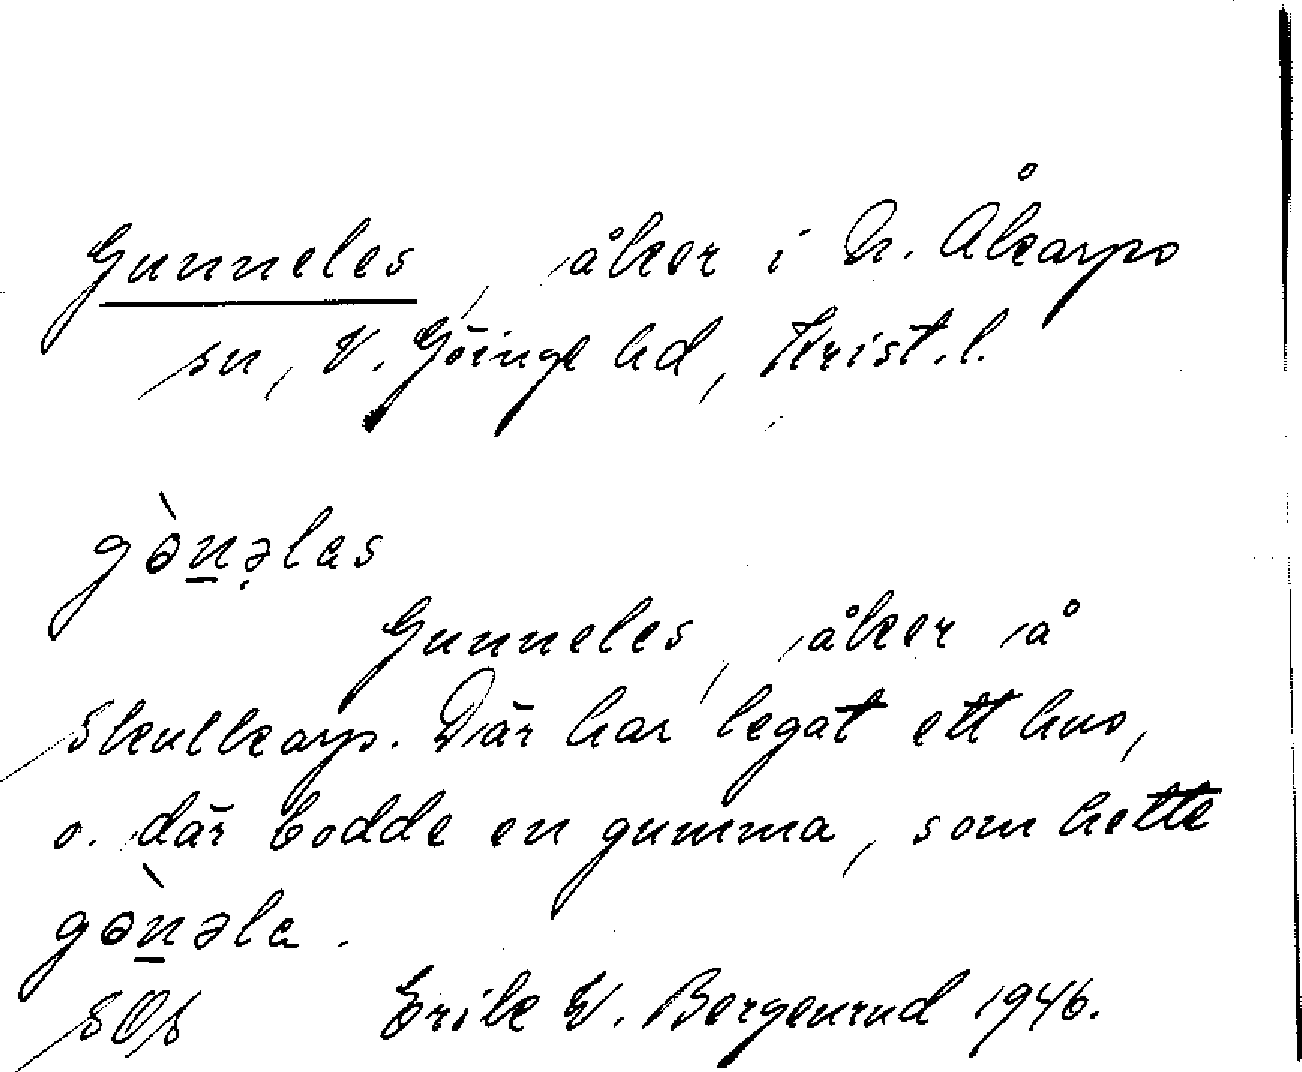 Gunneles, åker i N. Åkarps
sn, V. Göinge hd, Krist. l.
gə̀n̲ə̣las
Gunneles, åker å
Skulkarp. Där har legat ett hus,
o. där bodde en gumma, som hette
gə̀n̲əla.
Erik W. Bergenrud 1946.